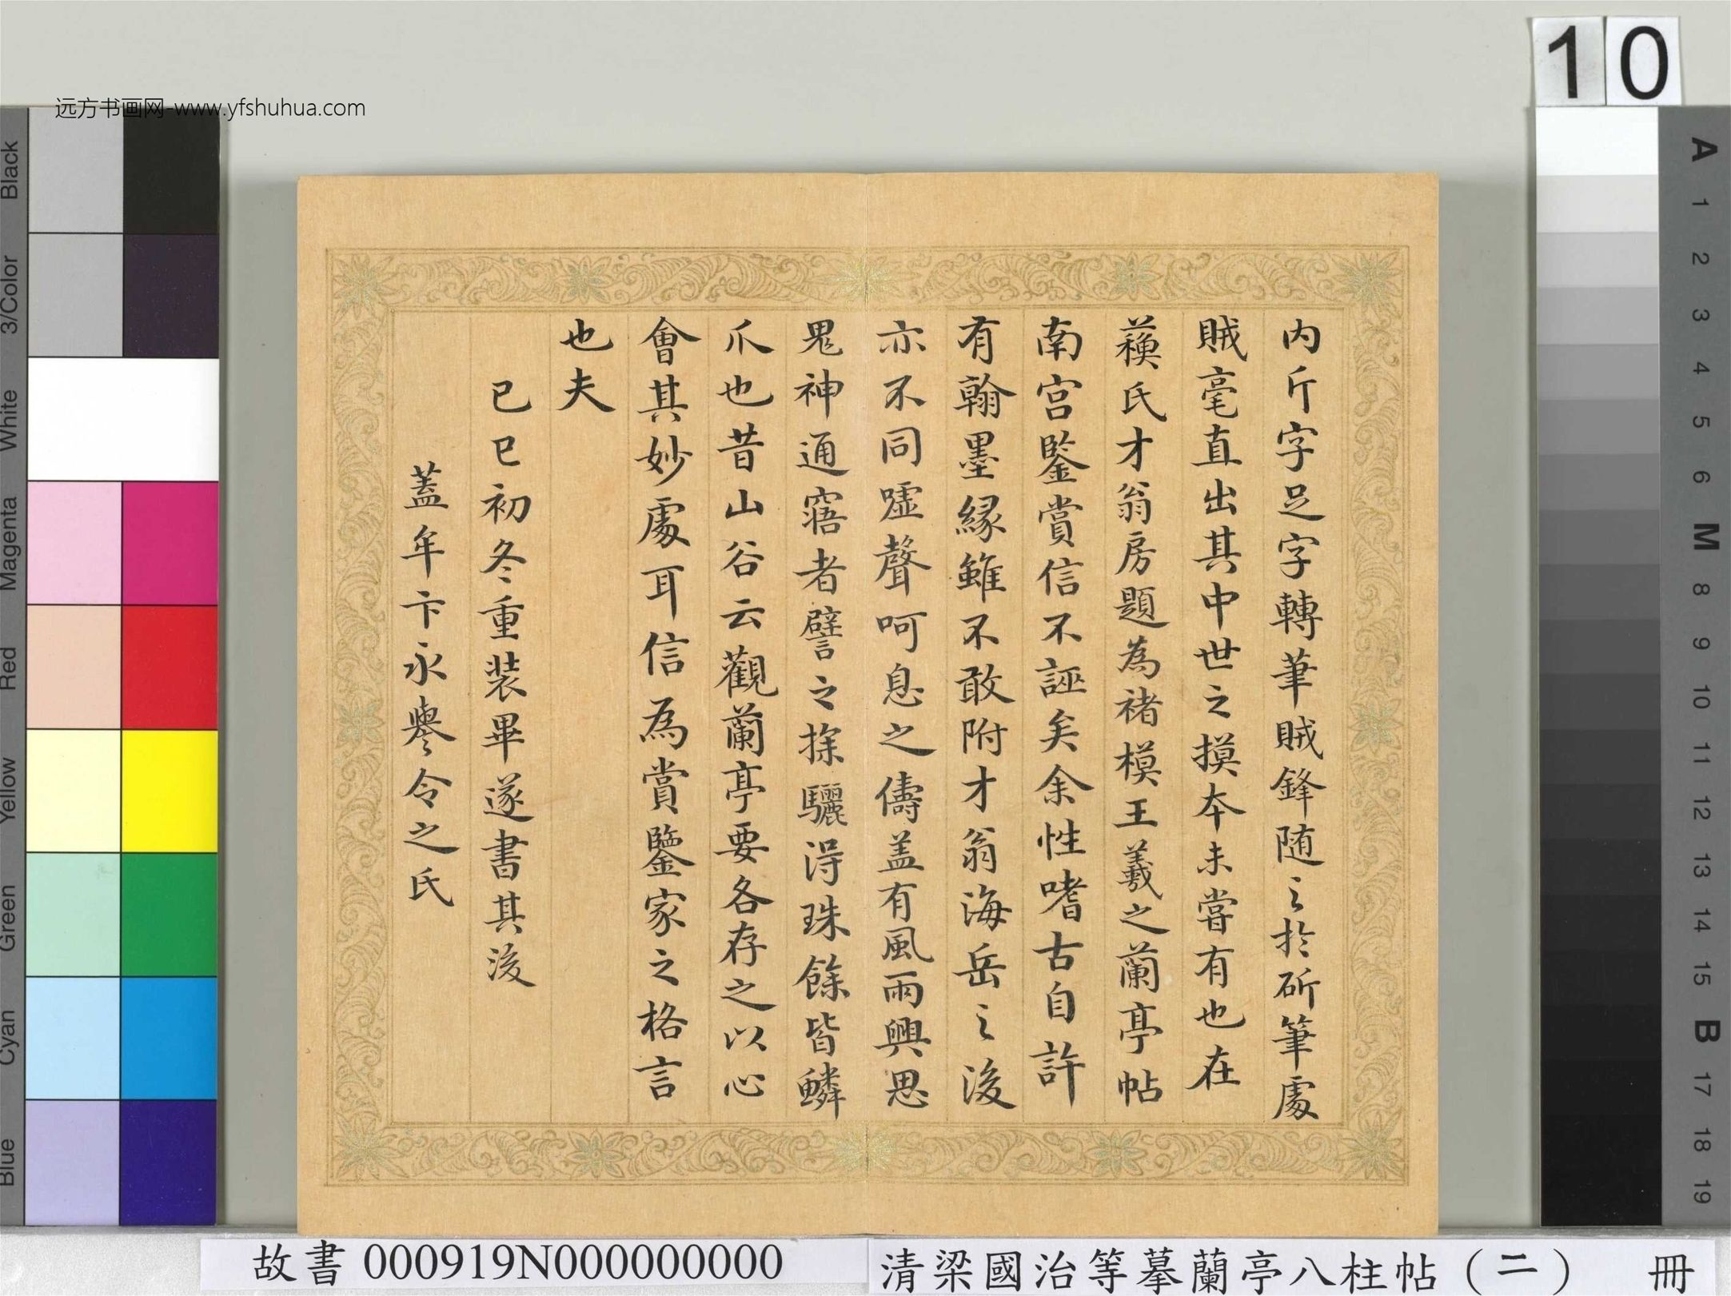 远方书画网-www.yfshuhua.com
10
内斤字足字轉筆賊鋒随之於斫筆處
賊毫直出其中世之摸本未嘗有也在
蘓氏才翁房題為禇模王羲之蘭亭帖
南宫鑒賞信不誣矣余性嗜古自許
有翰墨緣雖不敢附才翁海岳之後
亦不同噓聲呵息之儔盖有風雨興思
鬼神通寤者譬之探驪淂珠餘皆鱗
爪也昔山谷云觀蘭亭要各存之以心
會其妙處耳信為賞鑒家之格言
也夫
己巳初冬重装畢遂書其後
蓋牟卞永譽令之氏
Black
3/Color
White
Magenta
Red
Yellow
Green
Cyan
Blue
A 1 2 3 4 5 6 M 8 9 10 11 12 13 14 15 B 17 18 19
故書 000919N000000000
清梁國治等摹蘭亭八柱帖（二） 冊